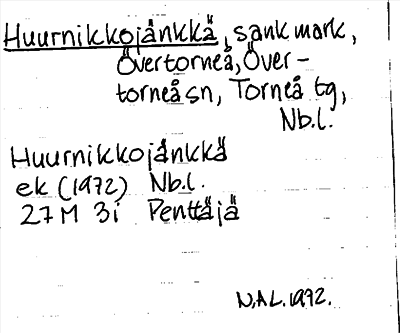 Huurnikkojänkkä, sank mark,
Övertorneå, Över-
torneå sn, Torneå tg,
Nb.l.
Huurnikkojänkkä
ek (1972) Nb.l.
27M 3i Penttäjä
N.A.L. 1972.